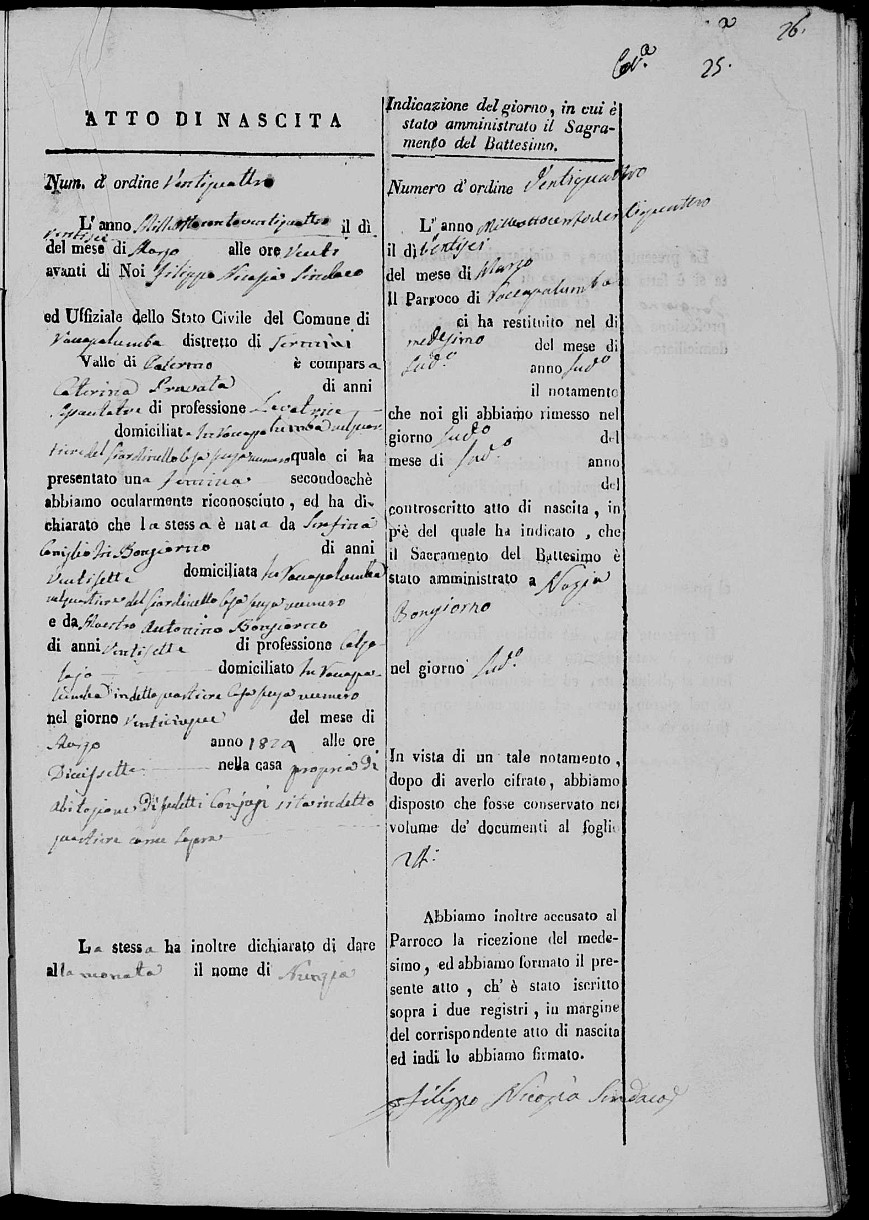 26.
25.
ATTO DI NASCITA
Num. d' ordine Ventiquattro
L' anno Milleottocentoventiquattro il dì
ventisei
del mese di Marzo alle ore Venti
avanti di Noi Filippo Nicosia Sindaco
ed Uffiziale dello Stato Civile del Comune di
Vaccapalumba distretto di Termini
Valle di Palermo è comparsa
Caterina di anni
di professione Levatrice
domiciliata In Vaccapalumba nel quar
tiere del Giardinello numero quale ci ha
presentato una Femina secondochè
abbiamo ocularmente riconosciuto, ed ha di-
chiarato che la stessa è nata da Serafina
Coniglio In Bongiorno di anni
Ventisette domiciliata In Vaccapalumba
nel quartiere del Giardinello numero
e da Maestro Antonino Bongiorno
di anni Ventisette di professione Calzo
lajo domiciliato In Vaccapa
lumba in detto quartiere numero
nel giorno Venticinque del mese di
Marzo anno 1824 alle ore
Diecisette nella casa propria Di
abitazione Di sudetti Conjugi sita in detto
quartiere come sopra
La stessa ha inoltre dichiarato di dare
alla neonata il nome di Nunzia
Indicazione del giorno, in cui è
stato amministrato il Sagra-
mento del Battesimo.
Numero d' ordine Ventiquattro
L' anno Milleottocentoventiquattro
il dì Ventisei
del mese di Marzo
Il Parroco di Vaccapalumba
ci ha restituito nel di
medesimo del mese di
Sud.o anno Sud.o
il notamento
che noi gli abbiamo rimesso nel
giorno Sud.o del
mese di Sud.o anno
del
controscritto atto di nascita, in
piè del quale ha indicato, che
il Sacramento del Battesimo è
stato amministrato a Nunzia
Bongiorno
nel giorno Sud.o
In vista di un tale notamento,
dopo di averlo cifrato, abbiamo
disposto che fosse conservato nel
volume de' documenti al foglio
24.
Abbiamo inoltre accusato al
Parroco la ricezione del mede-
simo, ed abbiamo formato il pre-
sente atto, ch' è stato iscritto
sopra i due registri, in margine
del corrispondente atto di nascita
ed indi lo abbiamo firmato.
Filippo Nicosia Sindaco